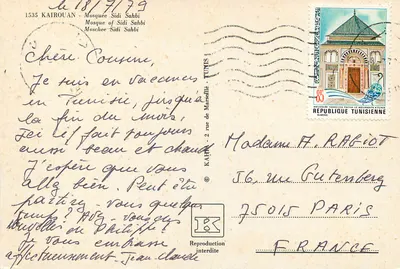 le 18/7/79
1535 KAIROUAN - Mosquée Sidi Sahbi
Mosque of Sidi Sahbi
Moschee Sidi Sahbi
Chère Cousine,
Je suis en vacances
en Tunisie, jusqu'à
la fin du mois,
ici il fait toujours
aussi beau et chaud
J'espère que vous
allez bien. Peut être
partirez-vous quelque
temps? Avez-vous des
nouvelles de Philippe?
Je vous embrasse
affectueusement Jean-Claude
© KAHIA - 2 rue de Marseille TUNIS
Reproduction
interdite
REPUBLIQUE TUNISIENNE
Madame A. RABIOT
56, rue Gutenberg
75015 PARIS
FRANCE